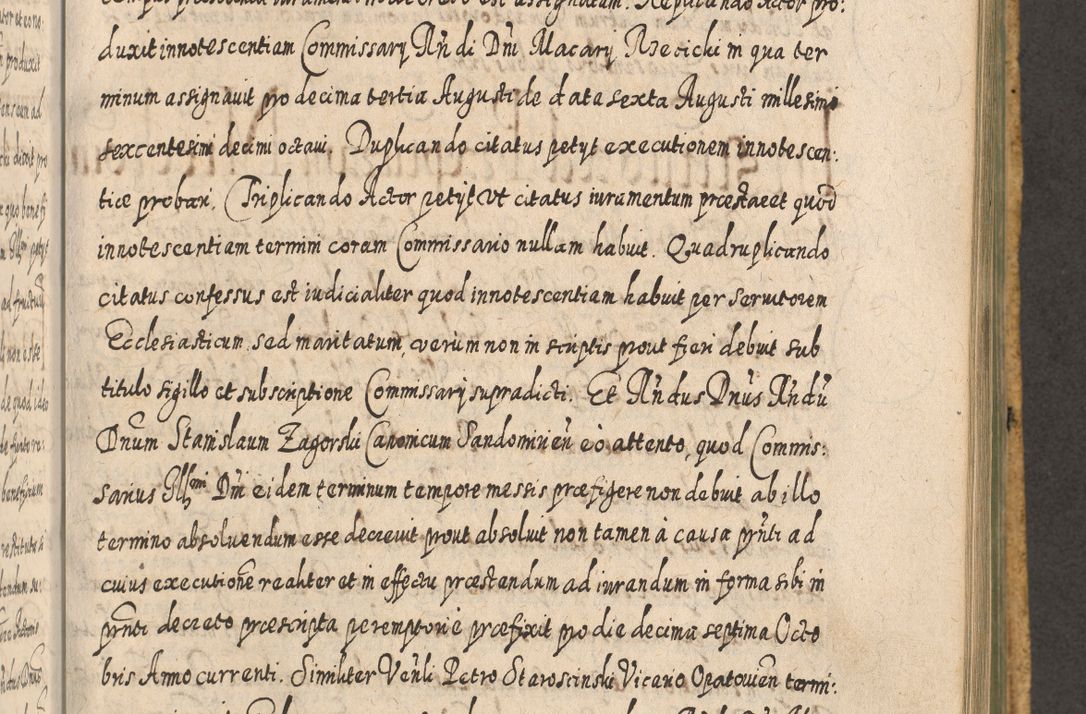 duxit innotescentiam Commissarÿ Rn̄di Dn̄i Macarÿ Rzecicki in qua ter
minum assignauit pro decima tertia Augusti de data sexta Augusti millesimo
sexcentesimi decimi octaui. Duplicando citatus petÿt executionem innotescen:
tiæ probari. Triplicando Actor petÿt ut citatus iuramentum præstaret quod
innotescentiam termini coram Commissario nullam habuit. Quadruplicando
citatus confessus est iudicialiter quod innotescentiam habuit per seruitorem
Ecclesiasticum sed maritatum, verum non in scriptis prout fieri debuit sub
titulo sigillo et subscriptione Commissarÿ supradicti. Et Rn̄dus Dn̄us Rn̄dū
Dnum Stanislaum Zagorski Canonicum Sandomirien̄ eo attento, quod Commis:
sarius Illmi Dn̄i eidem terminum tempore messis præfigere non debuit ab illo
termino absoluendum esse decreuit prout absoluit non tamen à causa pn̄ti ad
cuius executione realiter et in effectu præstandum ad iurandum in forma sibi in
pn̄ti decreto præscripta peremptorie præfixit pro die decima septima Octo
bris Anno currenti. Similiter Ven̄li Petro Staroscinski Vicario Opatouien termi: